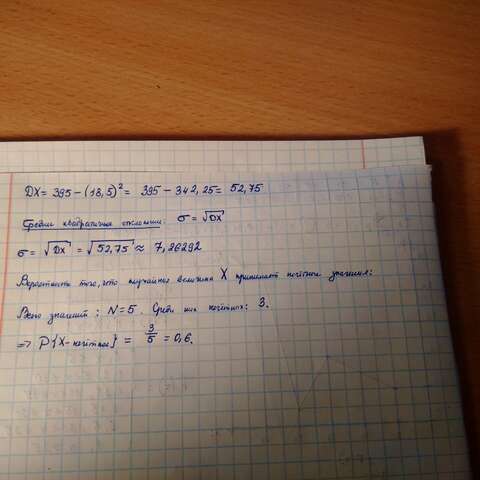 DX = 395 − (18,5)² = 395 − 342,25 = 52,75
Средн квадратичн отклонение: σ = √DX
σ = √DX = √52,75 ≈ 7,26292
Вероятность того, что случайная величина X принимает нечётное значения:
Всего значений: N = 5. Среди них нечётных: 3.
=> P{X - нечётное} = 3/5 = 0,6.